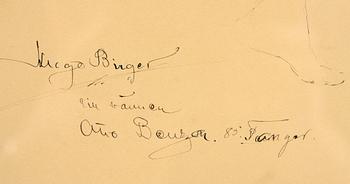 Hugo Birger
till vännen
Otto Benzon. 85. Tanger.